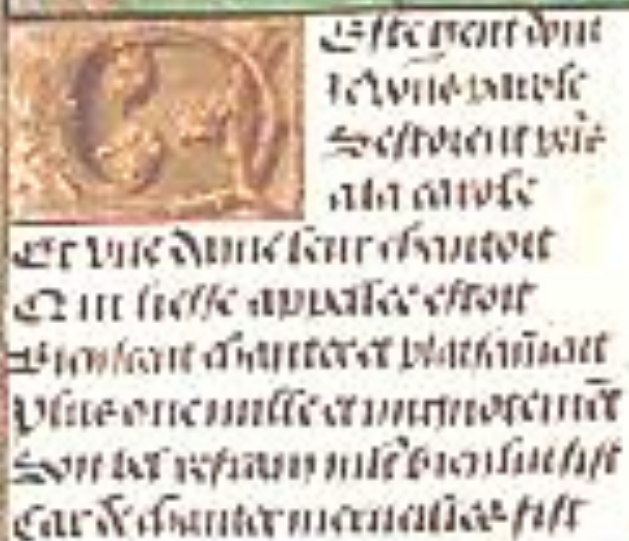 Ceste gent dont
Ie vous parole
Sestoient pris
a la carole
Et une dame leur chantoit
Qui liesse appellee estoit
Bien sceut chanter et
Plus nulle et mignotemēt
Son bel refrain bien lui sist
Car de chanter fist